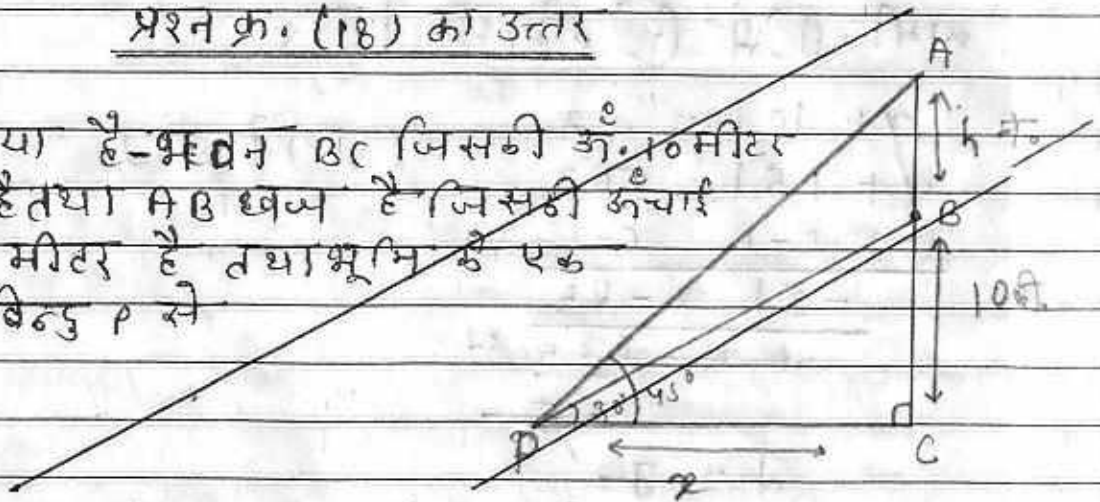 प्रश्न क्र. (18) का उत्तर
या है- भवन BC जिसकी ऊँ. 10 मीटर
है तथा AB ध्वज है जिसकी ऊँचाई
मीटर है तथा भूमि के एक
बिन्दु P से
A
h मी.
B
10 मी.
30° 45°
P
C
x